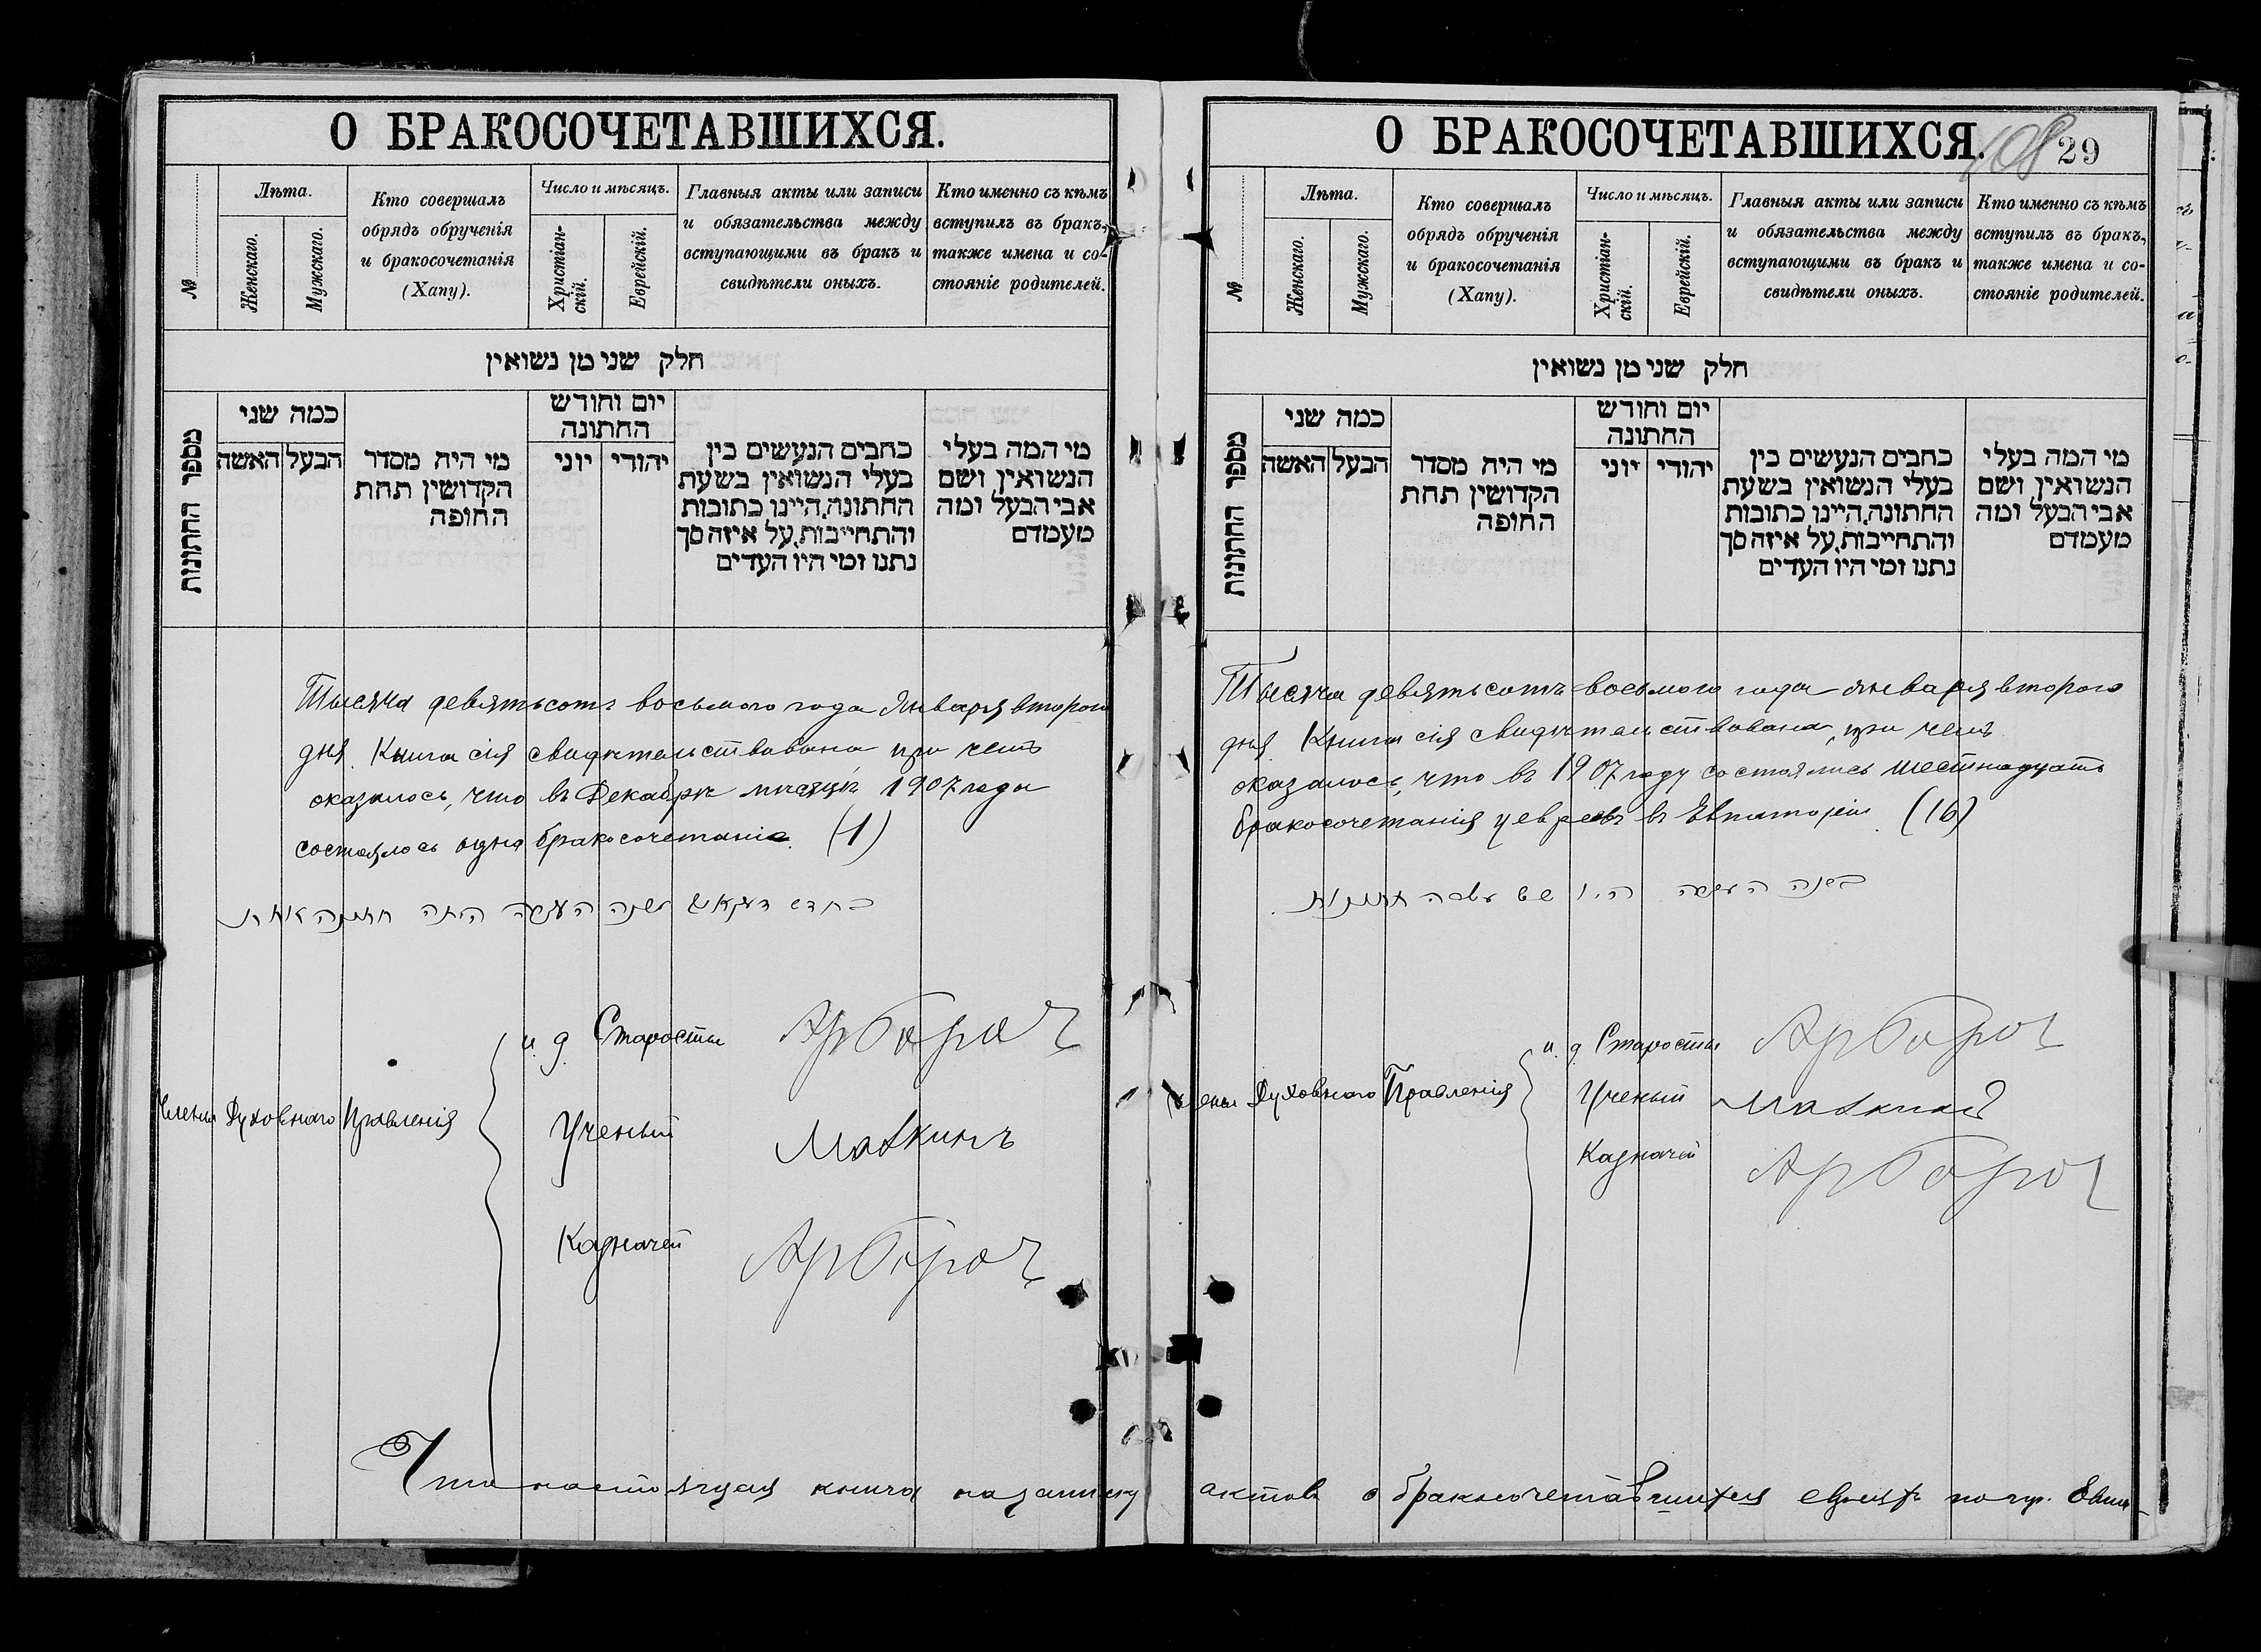 О БРАКОСОЧЕТАВШИХСЯ.
№
Лѣта.
Женскаго.
Мужскаго.
Кто совершалъ
обрядъ обрученія
и бракосочетанія
(Хапу).
Число и мѣсяцъ.
Христіан-
скій.
Еврейскій.
Главныя акты или записи
и обязательства между
вступающими въ бракъ и
свидѣтели оныхъ.
Кто именно съ кѣмъ
вступилъ въ бракъ,
также имена и со-
стояніе родителей.
חלק שני מן נשואין
מספר החתונות
כמה שני
הבעל
האשה
מי היה מסדר
הקדושין תחת
החופה
יום וחודש
החתונה
יהודי
יוני
כתבים הנעשים בין
בעלי הנשואין בשעת
החתונה, היינו כתובות
והתחייבות, על איזה סך
נתנו ומי היו העדים
מי המה בעלי
הנשואין ושם
אבי הבעל ומה
מעמדם
Тысяча девятьсотъ восьмого года Января второго
дня. Книга сія свидѣтельствована при чемъ
оказалось, что въ Декабрѣ мѣсяцѣ 1907 года
состоялось одно бракосочетаніе. (1)
היתה חתונה אחת
Члены Духовнаго Правленія
и. д. Старосты
Арборъ
Ученый Маткинъ
Казначей
О БРАКОСОЧЕТАВШИХСЯ.
108
29
№
Лѣта.
Женскаго.
Мужскаго.
Кто совершалъ
обрядъ обрученія
и бракосочетанія
(Хапу).
Число и мѣсяцъ.
Христіан-
скій.
Еврейскій.
Главныя акты или записи
и обязательства между
вступающими въ бракъ и
свидѣтели оныхъ.
Кто именно съ кѣмъ
вступилъ въ бракъ,
также имена и со-
стояніе родителей.
חלק שני מן נשואין
מספר החתונות
כמה שני
הבעל
האשה
מי היה מסדר
הקדושין תחת
החופה
יום וחודש
החתונה
יהודי
יוני
כתבים הנעשים בין
בעלי הנשואין בשעת
החתונה, היינו כתובות
והתחייבות, על איזה סך
נתנו ומי היו העדים
מי המה בעלי
הנשואין ושם
אבי הבעל ומה
מעמדם
Тысяча девятьсотъ восьмого года января второго
дня Книга сія свидѣтельствована, при чемъ
оказалось, что въ 1907 году состоялись шестнадцать
бракосочетанія у евреевъ въ Евпаторіи. (16)
היו שש עשרה חתונות
Члены Духовнаго Правленія
и. д. Старосты
Ученый
Казначей
Что настоящая книга на записку актовъ о бракосочетавшихся евреяхъ по гор. Евпа-